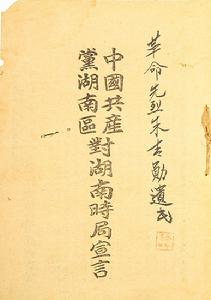 革命先烈朱吉勳遺民
中國共產
黨湖南區對湖南時局宣言